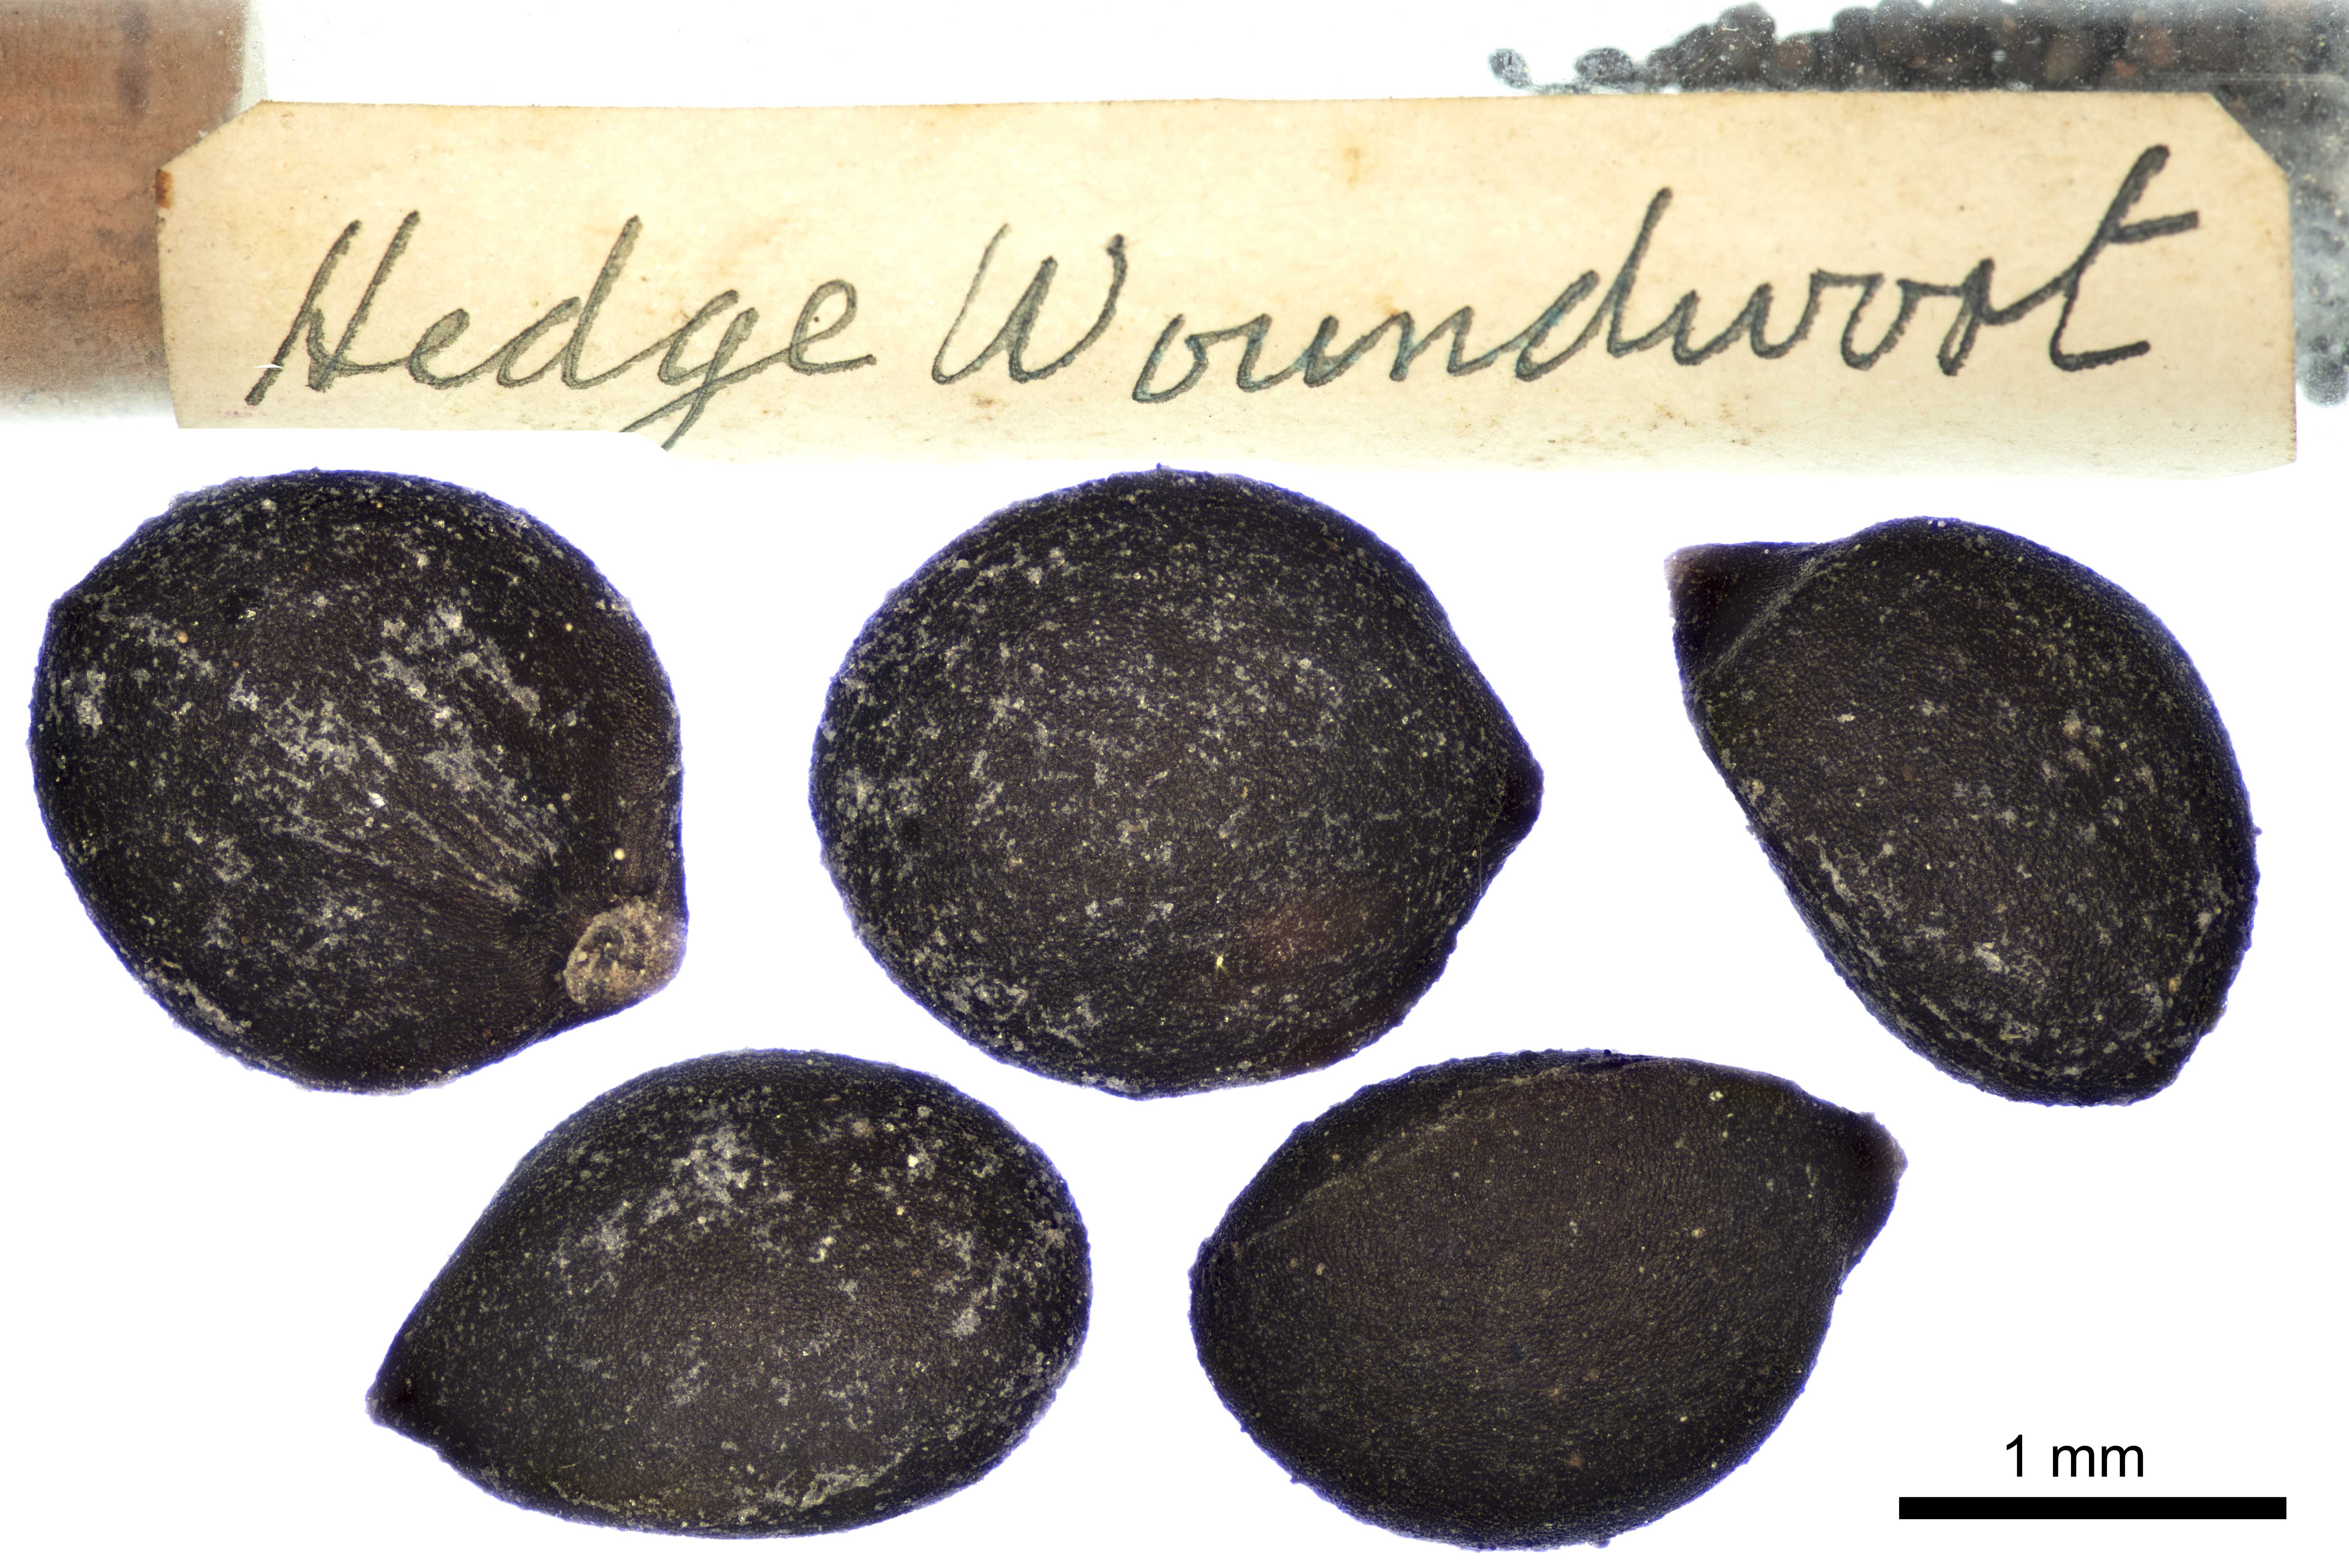 Hedge Woundwort
1 mm